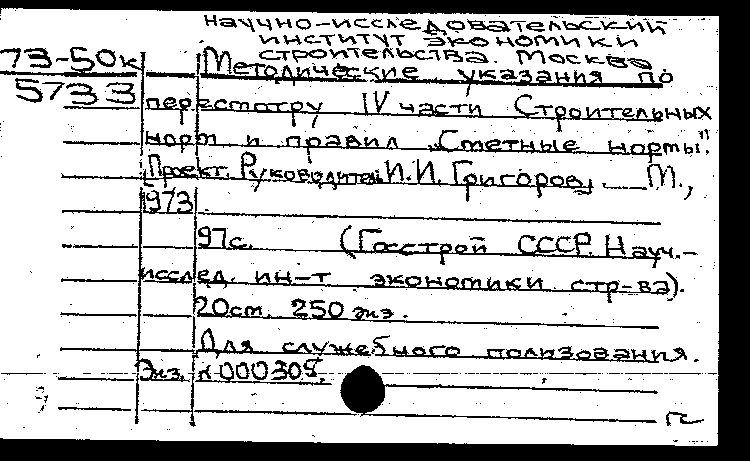 Научно-исследовательский
институт экономики
строительства. Москва
73-50к
5733
Методические указания по
пересмотру IV части Строительных
норм и правил „Сметные нормы".
[Проект. Руководитель И.И. Григоров]. М.,
1973.
97с. (Госстрой СССР. Науч.-
исслед. ин-т экономики стр-ва).
20см. 250 экз.
Для служебного ползования.
Экз. N 000308.